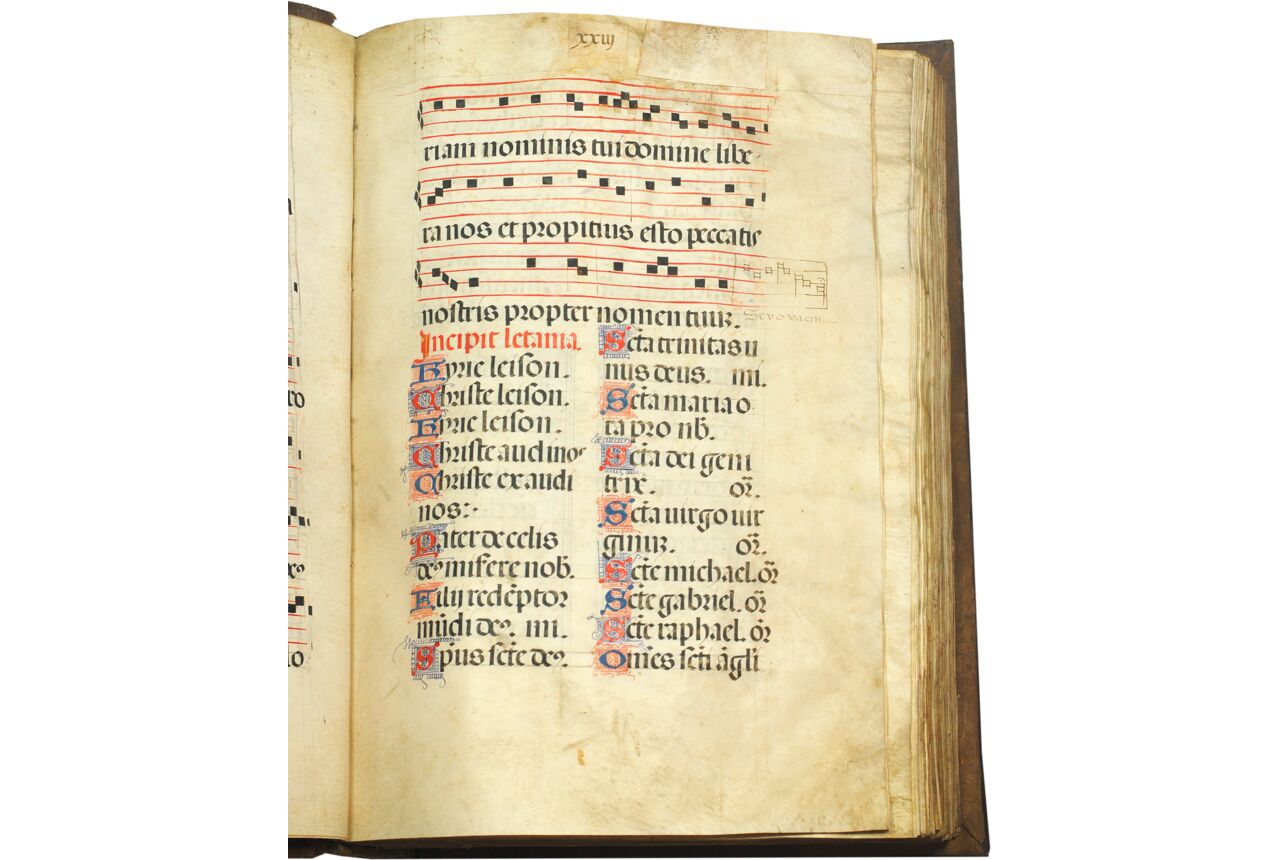 xxiij
riam nominis tui domine libe-
ra nos et propitius esto peccatis
nostris propter nomen tuū.
Sevovaem
Incipit letania.
Kyrie leison.
Christe leison.
Kyrie leison.
Christe audi nos
Christe exaudi
nos:-
Pater de celis
deꝰ miserenob̄.
Filij redēptor
mūdi deꝰ. mi.
Sp̄us scte deꝰ.
Sctā trinitas u
nus deus. mi.
Sctā maria o
ra pro nb̄.
Sctā dei geni
trix. or̄.
Sctā uirgo uir
ginū. or̄.
Scte michael. or̄
Scte gabriel. or̄
Scte raphael. or̄
Om̄es scti āgli
ro
xꝰ
io